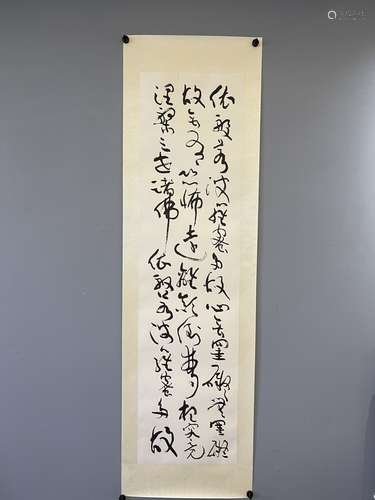 依般若波羅蜜多故心無罣礙無罣礙
故無有恐怖遠離顛倒夢想究竟
涅槃三世諸佛依般若波羅蜜多故